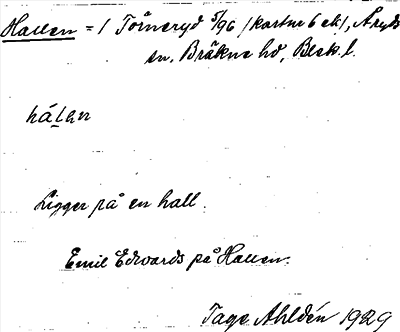 Hallen = / Törneryd 5/96 /kartur 6 ek/, Åryds
sn. Bräkne hd, Blek. l.
hálən
Ligger på en hall.
Emil Edvards på Hallen.
Tage Ahldén 1929